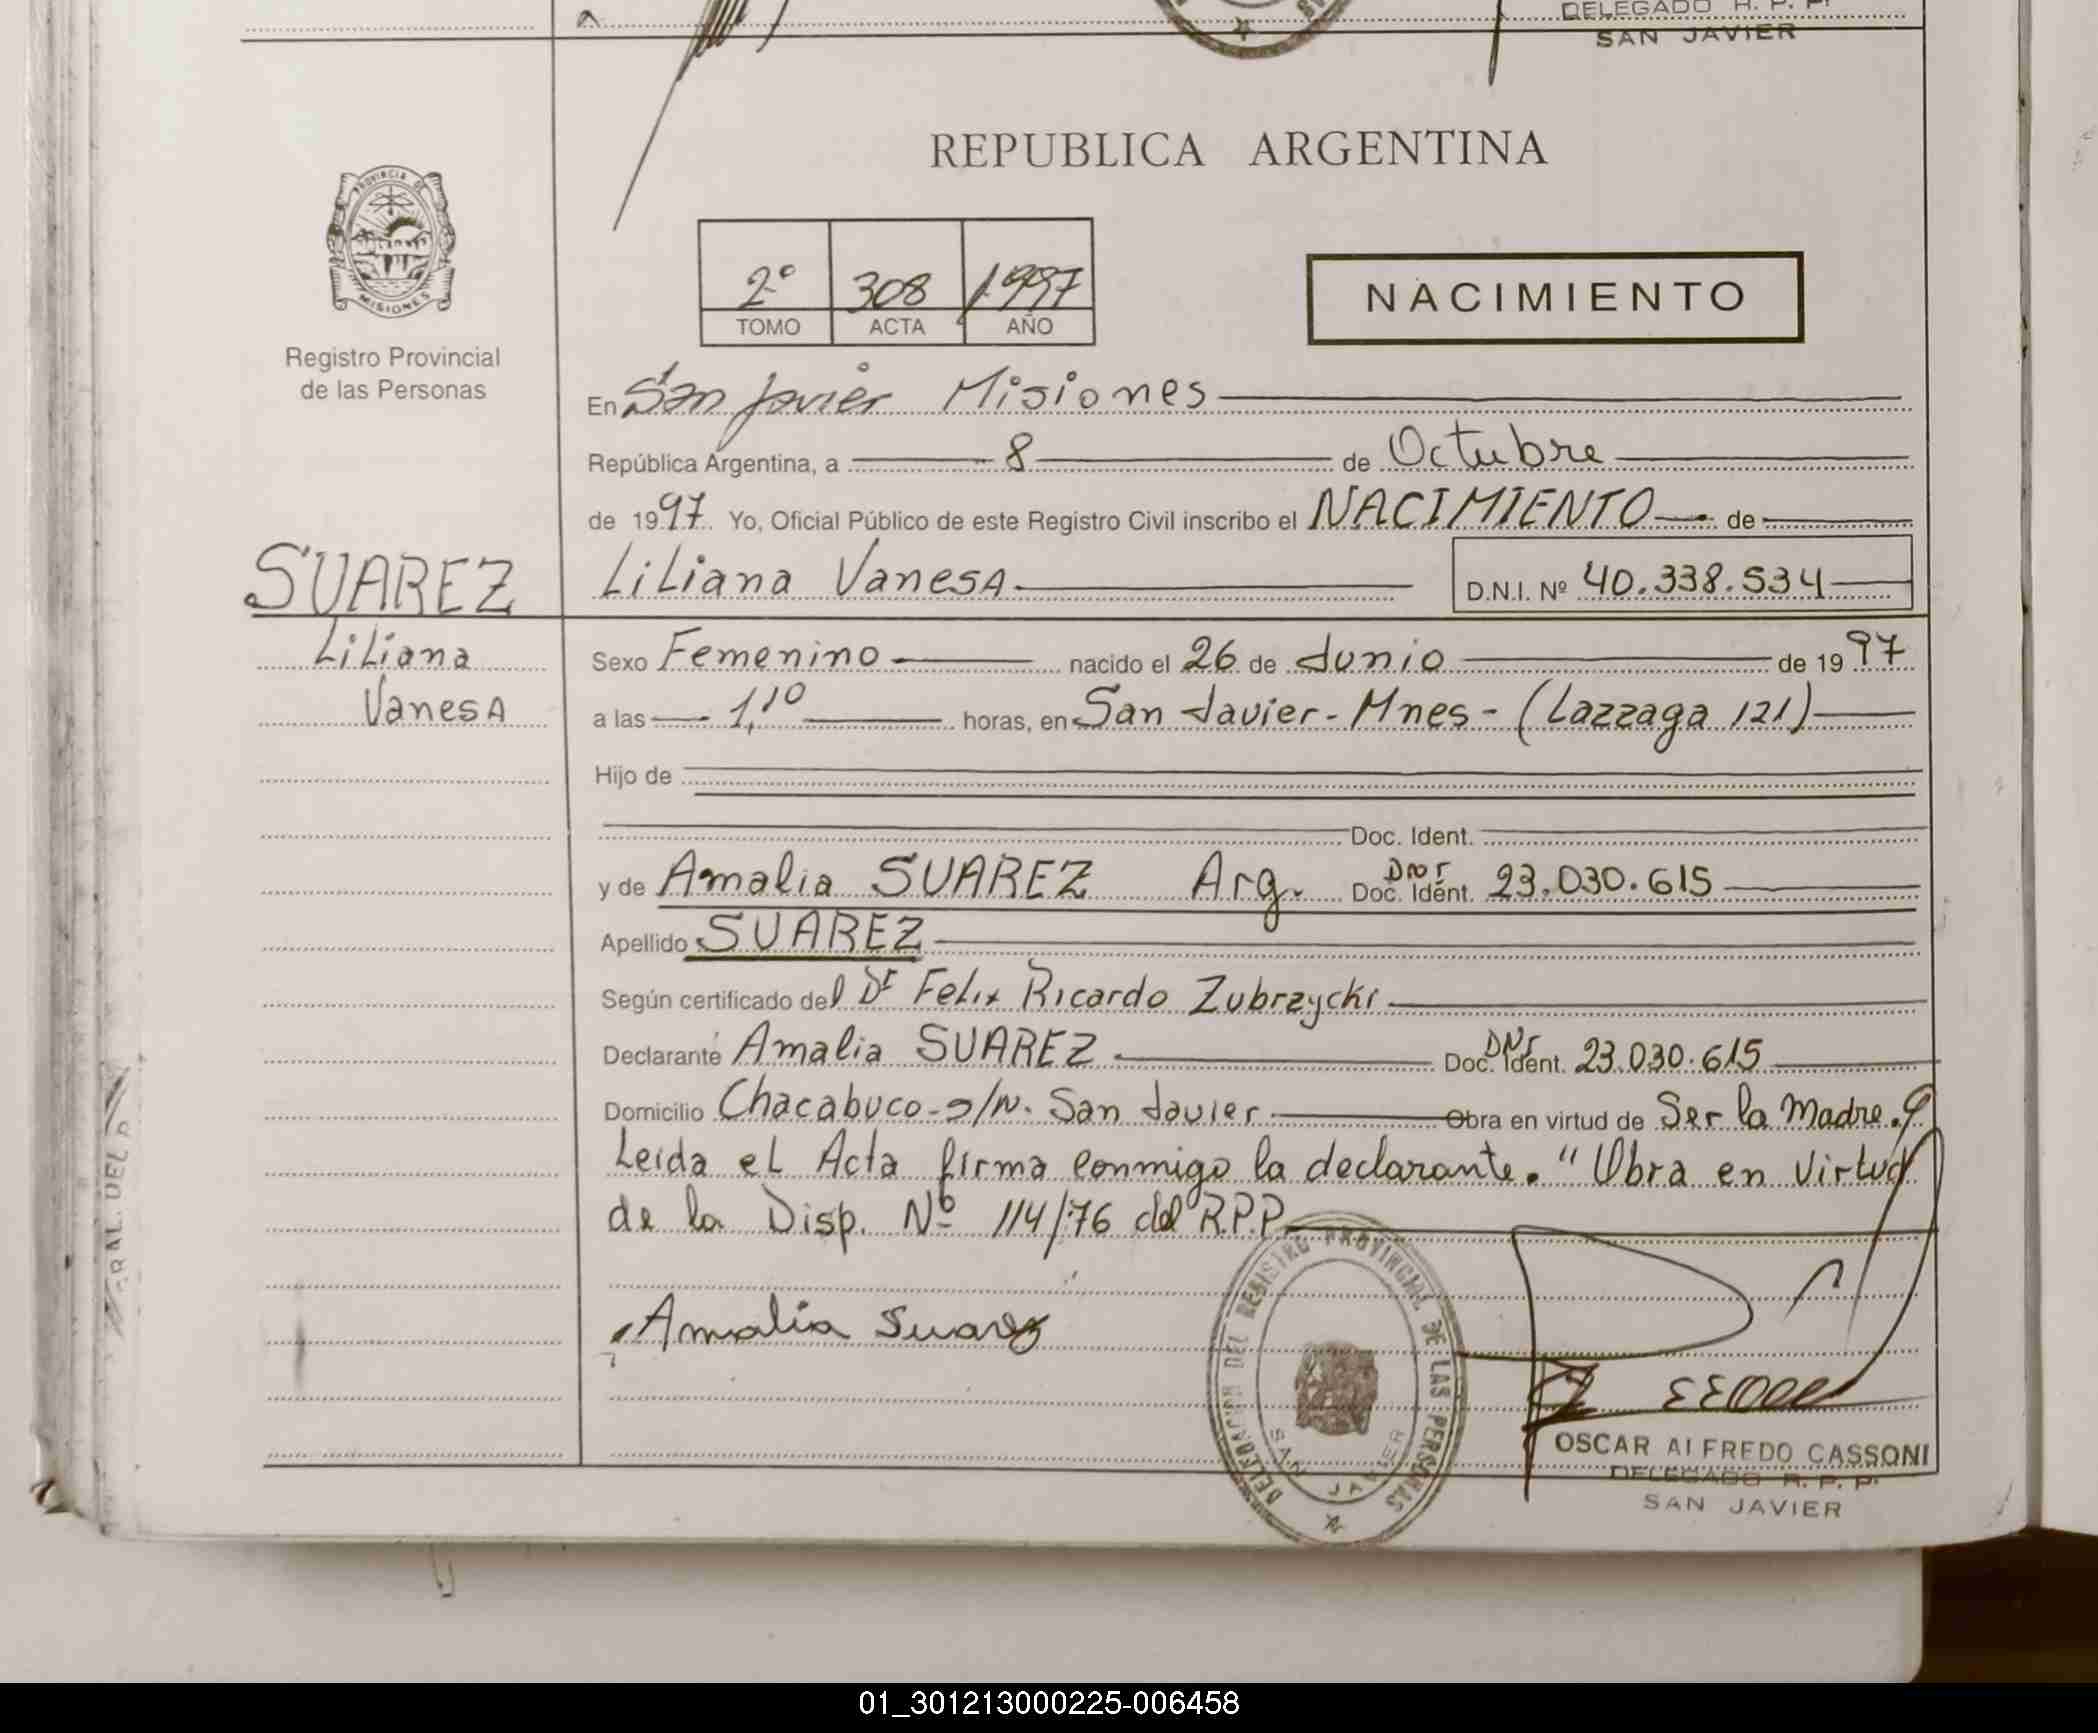 DELEGADO R. P. P.
SAN JAVIER
REPUBLICA ARGENTINA
PROVINCIA DE
MISIONES
Registro Provincial
de las Personas
2º 308 1997
TOMO ACTA AÑO
NACIMIENTO
En San Javier Misiones
República Argentina, a 8 de Octubre
de 1997 Yo, Oficial Público de este Registro Civil inscribo el NACIMIENTO de
SUAREZ Liliana Vanesa D.N.I. Nº 40.338.534
Liliana Sexo Femenino nacido el 26 de Junio de 1997
Vanesa a las 1,10 horas, en San Javier - Mnes - (Lazzaga 121)
Hijo de
Doc. Ident.
y de Amalia SUAREZ Arg. Doc. Ident. DNI 23.030.615
Apellido SUAREZ
Según certificado del Dr Felix Ricardo Zubrzycki
Declarante Amalia SUAREZ Doc. Ident. DNI 23.030.615
Domicilio Chacabuco - s/n. San Javier Obra en virtud de Ser la Madre.
Leida el Acta firma conmigo la declarante. "Obra en virtud
de la Disp. Nº 114/76 del R.P.P
Amalia Suarez
DELEGACION DEL REGISTRO PROVINCIAL DE LAS PERSONAS
SAN JAVIER
OSCAR ALFREDO CASSONI
DELEGADO R. P. P.
SAN JAVIER
01_301213000225-006458